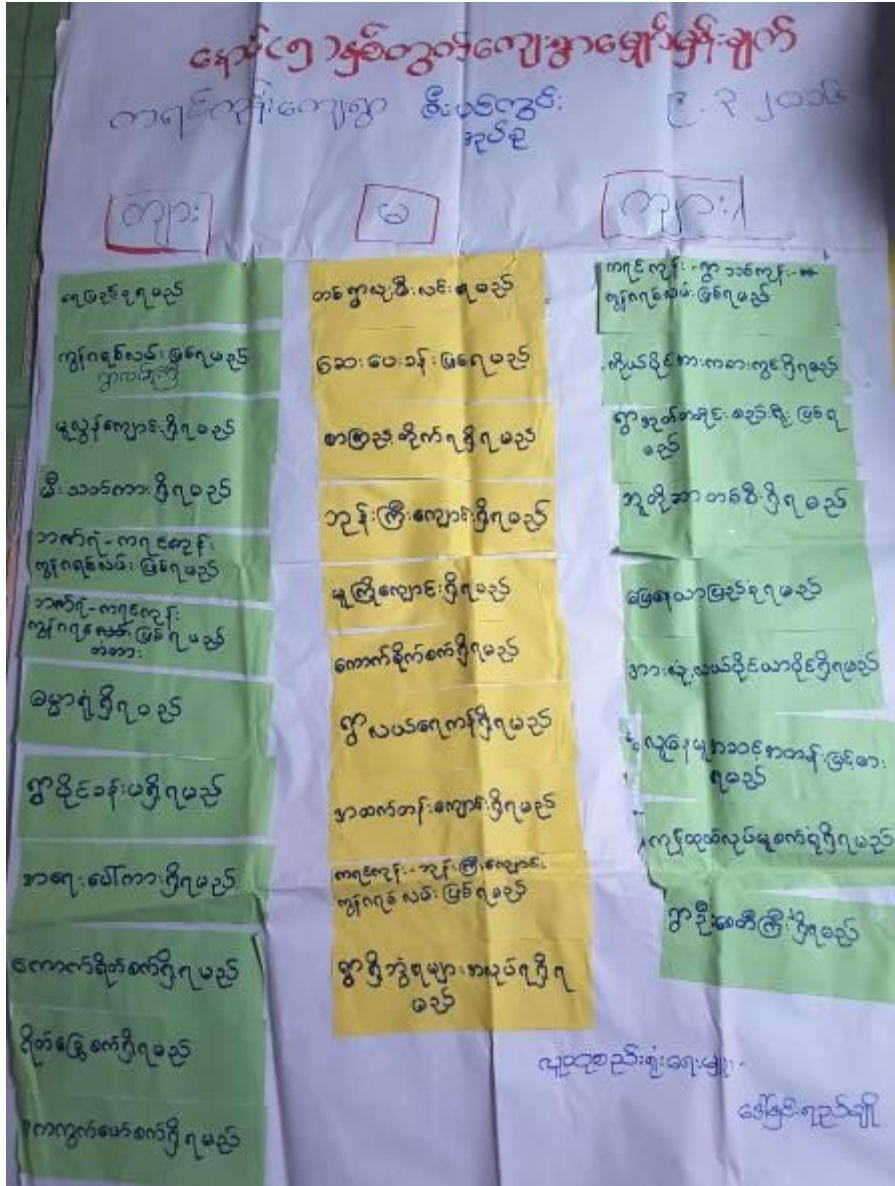 နောင်(၅)နှစ်တွက်ကျေးရွာမျှော်မှန်းချက်
ကရင်ကုန်းကျေးရွာ ဇီးပင်ကွင်း ၉.၃.၂၀၁၆
အုပ်စု
ကျား
မ
ကျား၊
ရေမြောင်းရှိရမည်
ကွန်ကရစ်လမ်းဖြစ်ရမည်
မူလွန်ကျောင်းရှိရမည်
မီးသတ်ကားရှိရမည်
ဘဏ်ရုံ-ကရင်ကုန်း
ကွန်ကရစ်လမ်းဖြစ်ရမည်
ဘဏ်ရုံ-ကရင်ကုန်း
ကွန်ကရစ်လမ်းဖြစ်ရမည်
တံတား
ဓမ္မာရုံရှိရမည်
ရွာပိုင်ခန်းမရှိရမည်
အရေးပေါ်ကားရှိရမည်
ကောက်ရိတ်စက်ရှိရမည်
ရိတ်ခြွေစက်ရှိရမည်
ကွက်ဖော်စက်ရှိရမည်
တစ်ရွာလုံးမီးလင်းရမည်
ဆေးပေးခန်းဖြစ်ရမည်
စာကြည့်တိုက်ရရှိရမည်
ဘုန်းကြီးကျောင်းရှိရမည်
မူကြိုကျောင်းရှိရမည်
ကောက်စိုက်စက်ရှိရမည်
ရွာလယ်ရေကန်ရှိရမည်
အထက်တန်းကျောင်းရှိရမည်
ကရင်ကုန်း-ဘုန်းကြီးကျောင်း
ကွန်ကရစ်လမ်းဖြစ်ရမည်
ရွာရှိဘွဲ့ရများအလုပ်ရရှိရ
မည်
ကရင်ကုန်း-ရွာသစ်ကုန်း-
ကွန်ကရစ်လမ်းဖြစ်ရမည်
ကိုယ်ပိုင်အားကစားကွင်းရှိရမည်
ရွာအုတ်တံတိုင်းစည်းရိုးဖြစ်ရ
မည်
ဘူတိုဆာတစ်စီးရှိရမည်
မြေသြဇာပြည့်စုံရမည်
အားလုံးလယ်ပိုင်ယာပိုင်ရှိရမည်
လူနေမှုအဆင့်အတန်းမြင့်မား
ရမည်
ကုန်ထုတ်လုပ်မှုစက်ရုံရှိရမည်
ရွာဦးစေတီကြီးရှိရမည်
လူထုစည်းရုံးရေးမှူး